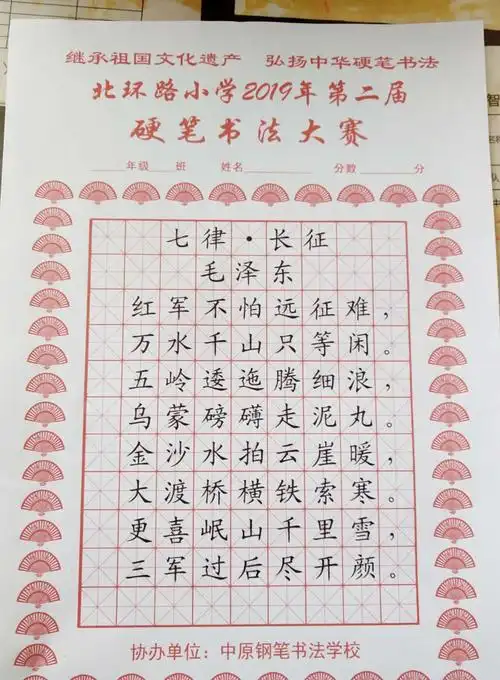 继承祖国文化遗产 弘扬中华硬笔书法
北环路小学2019年第二届
硬笔书法大赛
______年级____班 姓名__________ 分数________分
七律·长征
毛泽东
红军不怕远征难，
万水千山只等闲。
五岭逶迤腾细浪，
乌蒙磅礴走泥丸。
金沙水拍云崖暖，
大渡桥横铁索寒。
更喜岷山千里雪，
三军过后尽开颜。
协办单位：中原钢笔书法学校